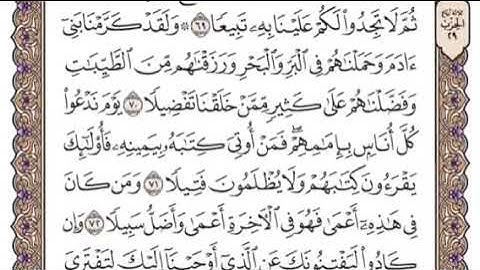 ثُمَّ لَا تَجِدُوا۟ لَكُمْ عَلَيْنَا بِهِۦ تَبِيعًا ٦٩ ۞ وَلَقَدْ كَرَّمْنَا بَنِىٓ
ءَادَمَ وَحَمَلْنَٰهُمْ فِى ٱلْبَرِّ وَٱلْبَحْرِ وَرَزَقْنَٰهُم مِّنَ ٱلطَّيِّبَٰتِ
وَفَضَّلْنَٰهُمْ عَلَىٰ كَثِيرٍ مِّمَّنْ خَلَقْنَا تَفْضِيلًا ٧٠ يَوْمَ نَدْعُوا۟
كُلَّ أُنَاسٍۭ بِإِمَٰمِهِمْ ۖ فَمَنْ أُوتِىَ كِتَٰبَهُۥ بِيَمِينِهِۦ فَأُو۟لَٰٓئِكَ
يَقْرَءُونَ كِتَٰبَهُمْ وَلَا يُظْلَمُونَ فَتِيلًا ٧١ وَمَن كَانَ
فِى هَٰذِهِۦٓ أَعْمَىٰ فَهُوَ فِى ٱلْءَاخِرَةِ أَعْمَىٰ وَأَضَلُّ سَبِيلًا ٧٢ وَإِن
كَادُوا۟ لَيَفْتِنُونَكَ عَنِ ٱلَّذِىٓ أَوْحَيْنَآ إِلَيْكَ لِتَفْتَرِىَ
الحزب
٢٩